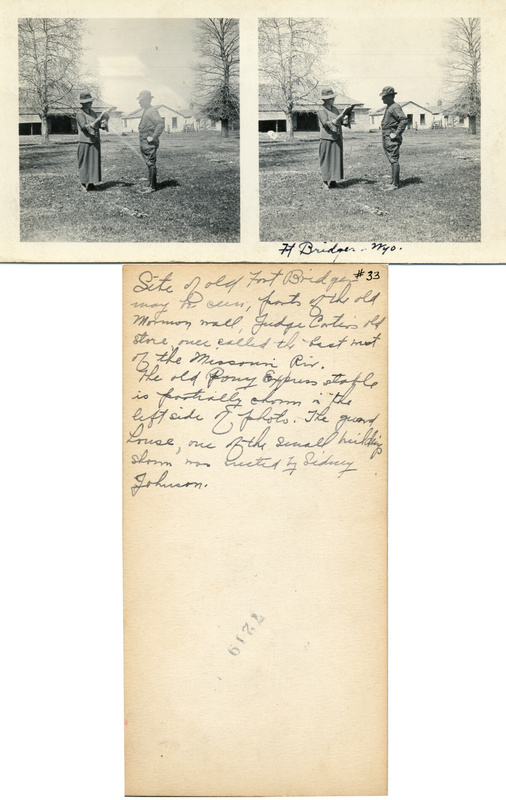 Ft Bridger - Wyo.
#33
Site of old Fort Bridger
may be seen, parts of the old
Mormon wall, Judge Carter's old
store, once called the best west
of the Missouri Riv.
The old Pony Express stable
is partially shown in the
left side of photo. The guard
house, one of the small buildings
shown was erected by Sidney
Johnson.
7219